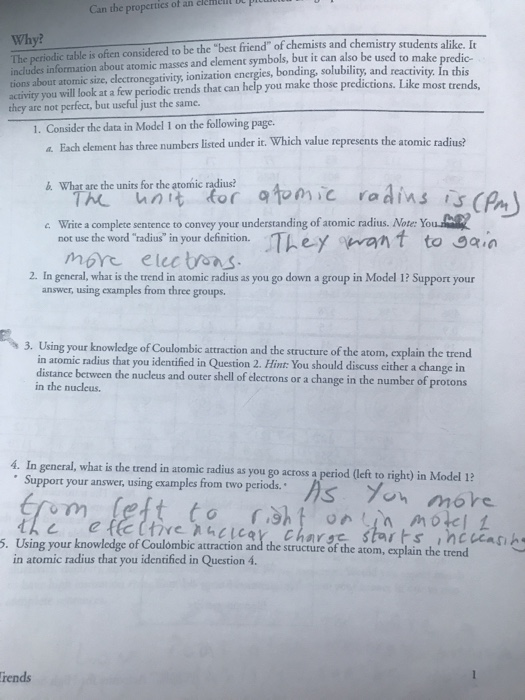 Can the properties of an
Why?
The periodic table is often considered to be the "best friend" of chemists and chemistry students alike. It
includes information about atomic masses and element symbols, but it can also be used to make predic-
tions about atomic size, electronegativity, ionization energies, bonding, solubility, and reactivity. In this
activity you will look at a few periodic trends that can help you make those predictions. Like most trends,
they are not perfect, but useful just the same.
1. Consider the data in Model 1 on the following page.
a. Each element has three numbers listed under it. Which value represents the atomic radius?
b. What are the units for the atomic radius?
The unit for atomic radius is (Pm)
c. Write a complete sentence to convey your understanding of atomic radius. Note: You may
not use the word "radius" in your definition. They want to gain
more electrons.
2. In general, what is the trend in atomic radius as you go down a group in Model 1? Support your
answer, using examples from three groups.
3. Using your knowledge of Coulombic attraction and the structure of the atom, explain the trend
in atomic radius that you identified in Question 2. Hint: You should discuss either a change in
distance between the nucleus and outer shell of electrons or a change in the number of protons
in the nucleus.
4. In general, what is the trend in atomic radius as you go across a period (left to right) in Model 1?
Support your answer, using examples from two periods. As you move
from left to right on in model 1
the effective nuclear charge starts increasing
5. Using your knowledge of Coulombic attraction and the structure of the atom, explain the trend
in atomic radius that you identified in Question 4.
Trends 1